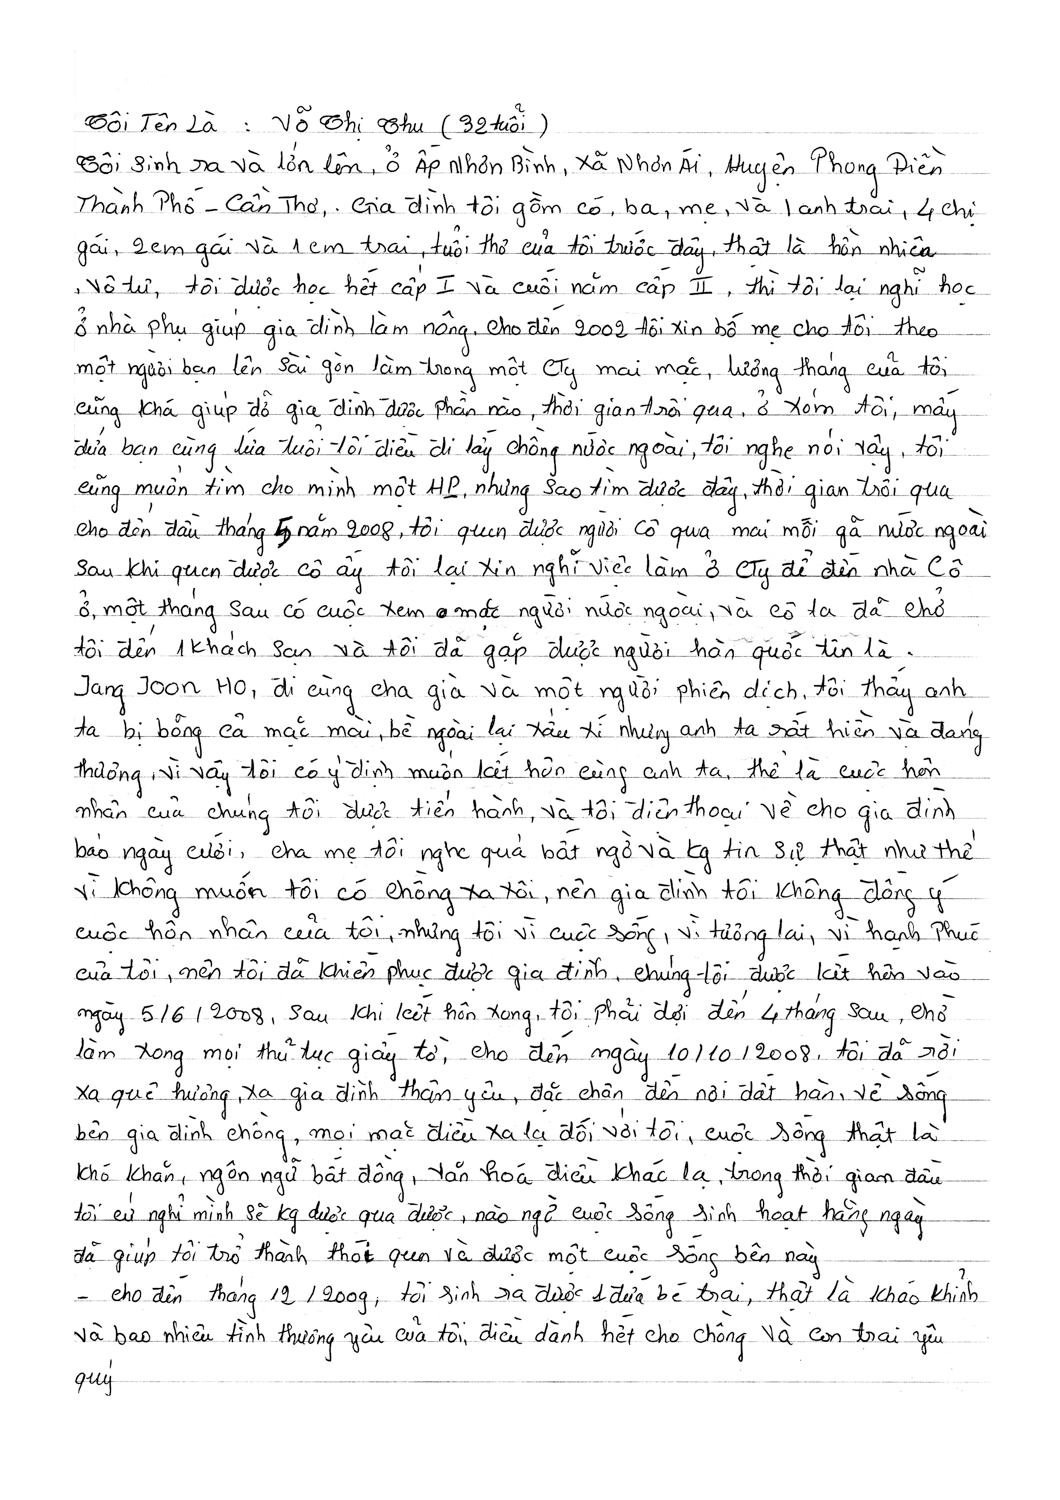 Tôi Tên Là : Võ Thị Thu ( 32 tuổi )
Tôi Sinh ra và lớn lên, ở Ấp Nhơn Bình, Xã Nhơn Ái, Huyện Phong Điền
Thành Phố - Cần Thơ,. Gia đình tôi gồm có, ba, mẹ, và 1 anh trai, 4 chị
gái, 2 em gái và 1 em trai, tuổi thơ của tôi trước đây, thật là hồn nhiên
, vô tư, tôi được học hết cấp I và cuối năm cấp II, thì tôi lại nghĩ học
ở nhà phụ giúp gia đình làm nông, cho đến 2002 tôi xin bố mẹ cho tôi theo
một người bạn lên Sài gòn làm trong một CTy mai mặc, lương tháng của tôi
cũng khá giúp đỡ gia đình được phần nào, thời gian trôi qua, ở xóm tôi, mấy
đứa bạn cùng lứa tuổi tôi điều đi lấy chồng nước ngoài, tôi nghe nói vậy, tôi
cũng muốn tìm cho mình một HP, nhưng Sao tìm được đây, thời gian trôi qua
cho đến đầu tháng 5 năm 2008, tôi quen được người Cô qua mai mối gã nước ngoài
Sau khi quen được cô ấy tôi lại xin nghĩ việc làm ở CTy để đến nhà Cô
ở, một tháng Sau có cuộc xem mặc người nước ngoài, và cô ta đã chở
tôi đến 1 Khách Sạn và tôi đã gặp được người hàn quốc tên là.
Jang Joon HO, đi cùng cha già và một người phiên dịch, tôi thấy anh
ta bị bỏng cả mặc mài, bề ngoài lại xấu xí nhưng anh ta rất hiền và đáng
thương, vì vậy tôi có ý định muốn kết hôn cùng anh ta, thế là cuộc hôn
nhân của chúng tôi được tiến hành, và tôi điện thoại về cho gia đình
báo ngày cưới, cha mẹ tôi nghe quá bất ngờ và kg tin Sự thật như thế
vì Không muốn tôi có chồng xa xôi, nên gia đình tôi Không đồng ý
cuộc hôn nhân của tôi, nhưng tôi vì cuộc Sống, vì tương lai, vì hạnh Phúc
của tôi, nên tôi đã khiến phục được gia đình, chúng tôi được kết hôn vào
ngày 5/6/2008, Sau Khi kết hôn xong, tôi phải đợi đến 4 tháng Sau, chờ
làm xong mọi thủ tục giấy tờ, cho đến ngày 10/10/2008, tôi đã rời
xa quê hương, xa gia đình thân yêu, đặc chân đến nơi đất hàn, về Sống
bên gia đình chồng, mọi mặc điều xa lạ đối với tôi, cuộc Sống thật là
khó khăn, ngôn ngữ bất đồng, văn hoá điều khác lạ, trong thời gian đầu
tôi cứ nghỉ mình Sẽ kg được qua được, nào ngờ cuộc Sống Sinh hoạt hằng ngày
đã giúp tôi trở thành thói quen và được một cuộc Sống bên này
- cho đến tháng 12/2009, tôi Sinh ra được 1 đứa bé trai, thật là kháo khỉnh
và bao nhiêu tình thương yêu của tôi, điều dành hết cho chồng Và con trai yêu
quý